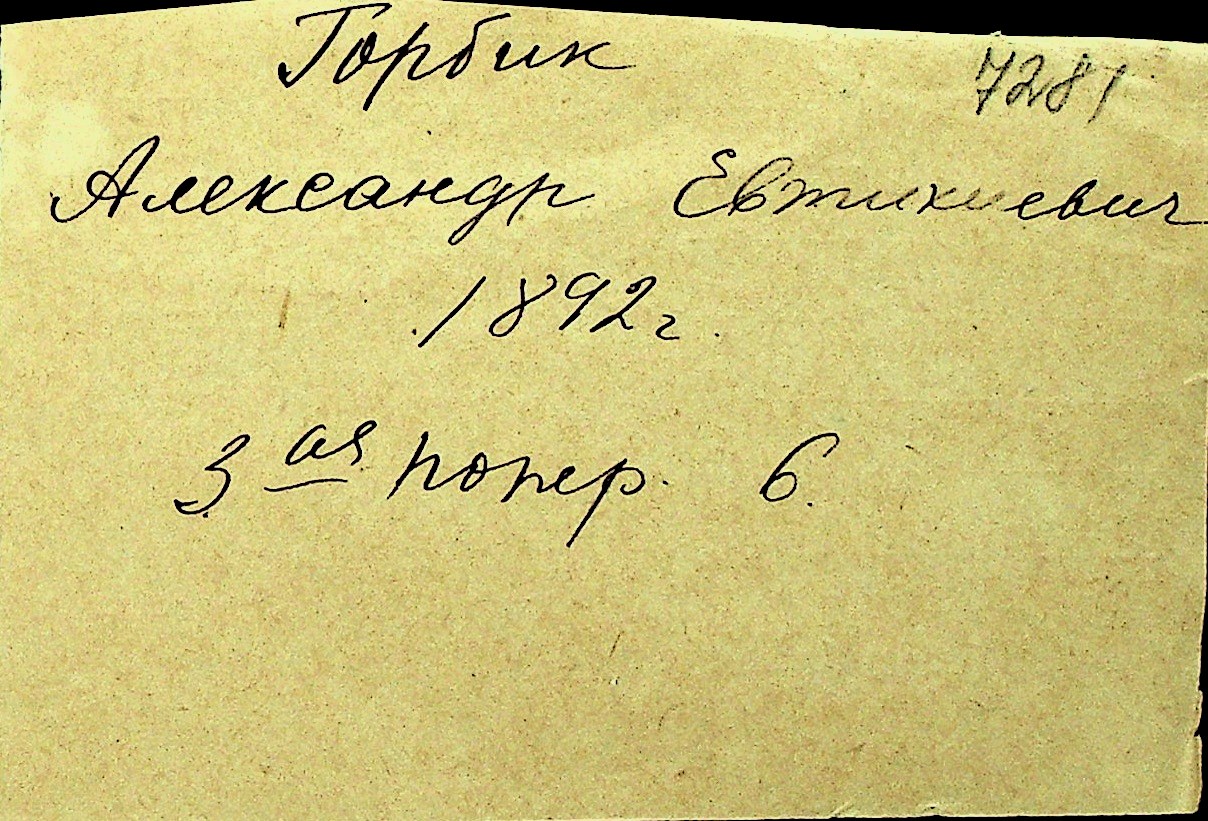 Горбик
7281
Александр Евтихиевич
1892 г.
3 ая попер. 6.